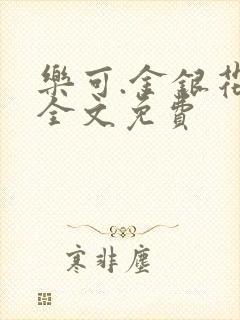 樂可.金銀花
全文免費
寒非塵